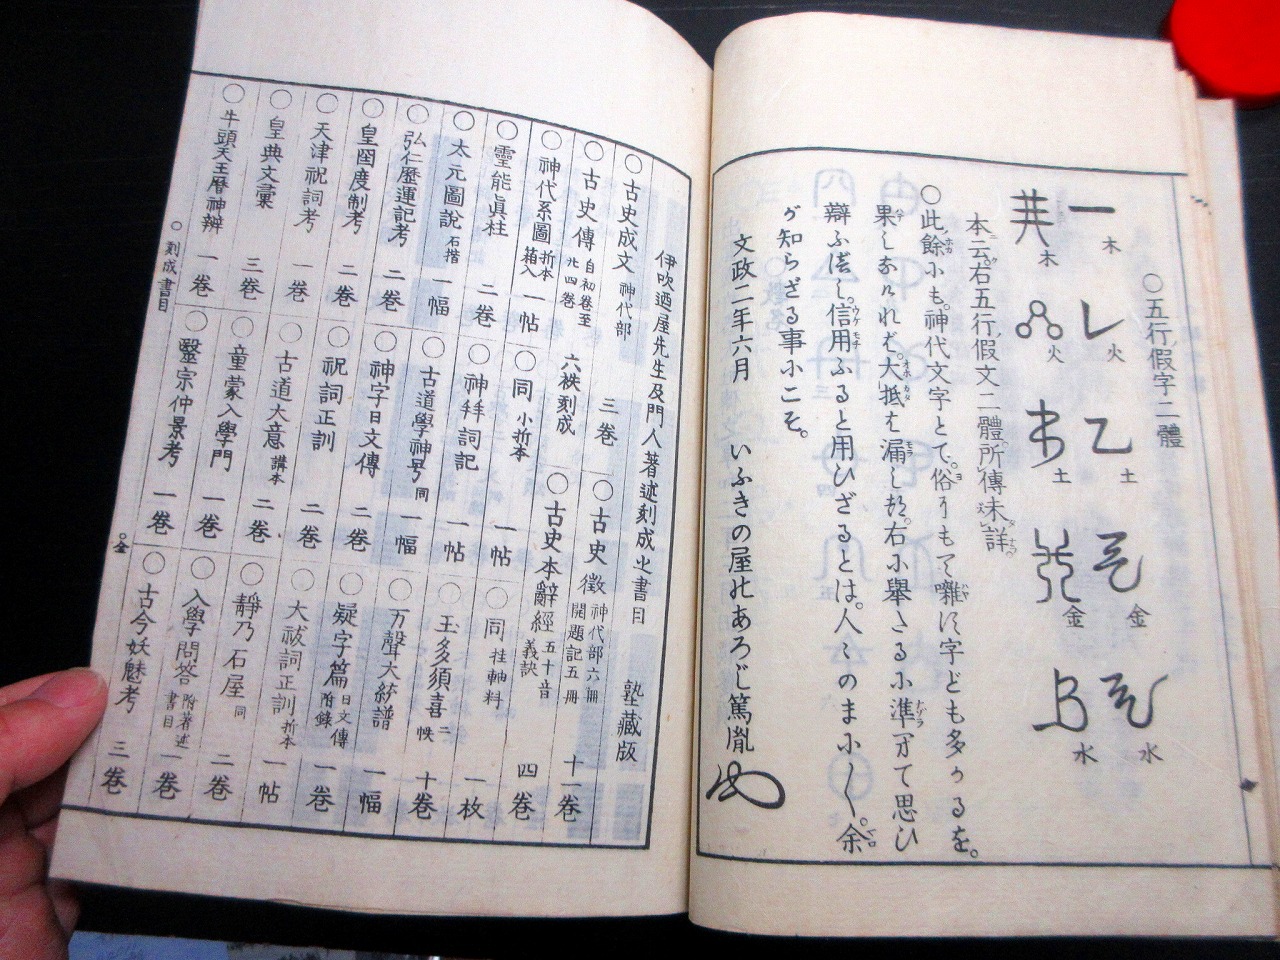 ○五行假字二體
一 木 レ 火 乙 土 金 水
木 火 土 金 水
本ニ云右五行ノ假文二體所傳未詳
○此餘にも。神代文字とて。俗りもて囃す字ども多かるを。
果しあれれど。大抵を漏しれ。右に擧たる小準へて思ひ
辯ふばし。信用ふると用ひざるとは。人々のまに〳〵。余
が知らざる事にこそ。
文政二年六月 いぶきの屋のあろじ篤胤
伊吹廼屋先生及門人著述刻成之書目 塾藏版
○古史成文 神代部 三巻 ○古史徴 神代部六冊 開題記五冊 十一巻
○古史傳 自初巻至廿四巻 六袟刻成 ○古史本辭經 五十音義訣 四巻
○神代系圖 折本箱入 一帖 ○同 小折本 一帖 ○同 挂軸料 一枚
○靈能眞柱 二巻 ○神拜詞記 一帖 ○玉多須喜 二帙 十巻
○太元圖說 石摺 一幅 ○古道學神号 同 一幅 ○万聲大統譜 一幅
○弘仁歷運記考 二巻 ○神字日文傳 二巻 ○疑字篇 日文傳附錄 一巻
○皇國度制考 二巻 ○祝詞正訓 二巻 ○大祓詞正訓 折本 一帖
○天津祝詞考 一巻 ○古道大意 講本 二巻 ○靜乃石屋 同 二巻
○皇典文彙 三巻 ○童蒙入學門 一巻 ○入學問答 附著述書目 一巻
○牛頭天王曆神辨 一巻 ○醫宗仲景考 一巻 ○古今妖魅考 三巻
○刻成書目 ○金